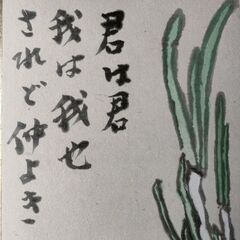 君は君
我は我也
されど仲よき